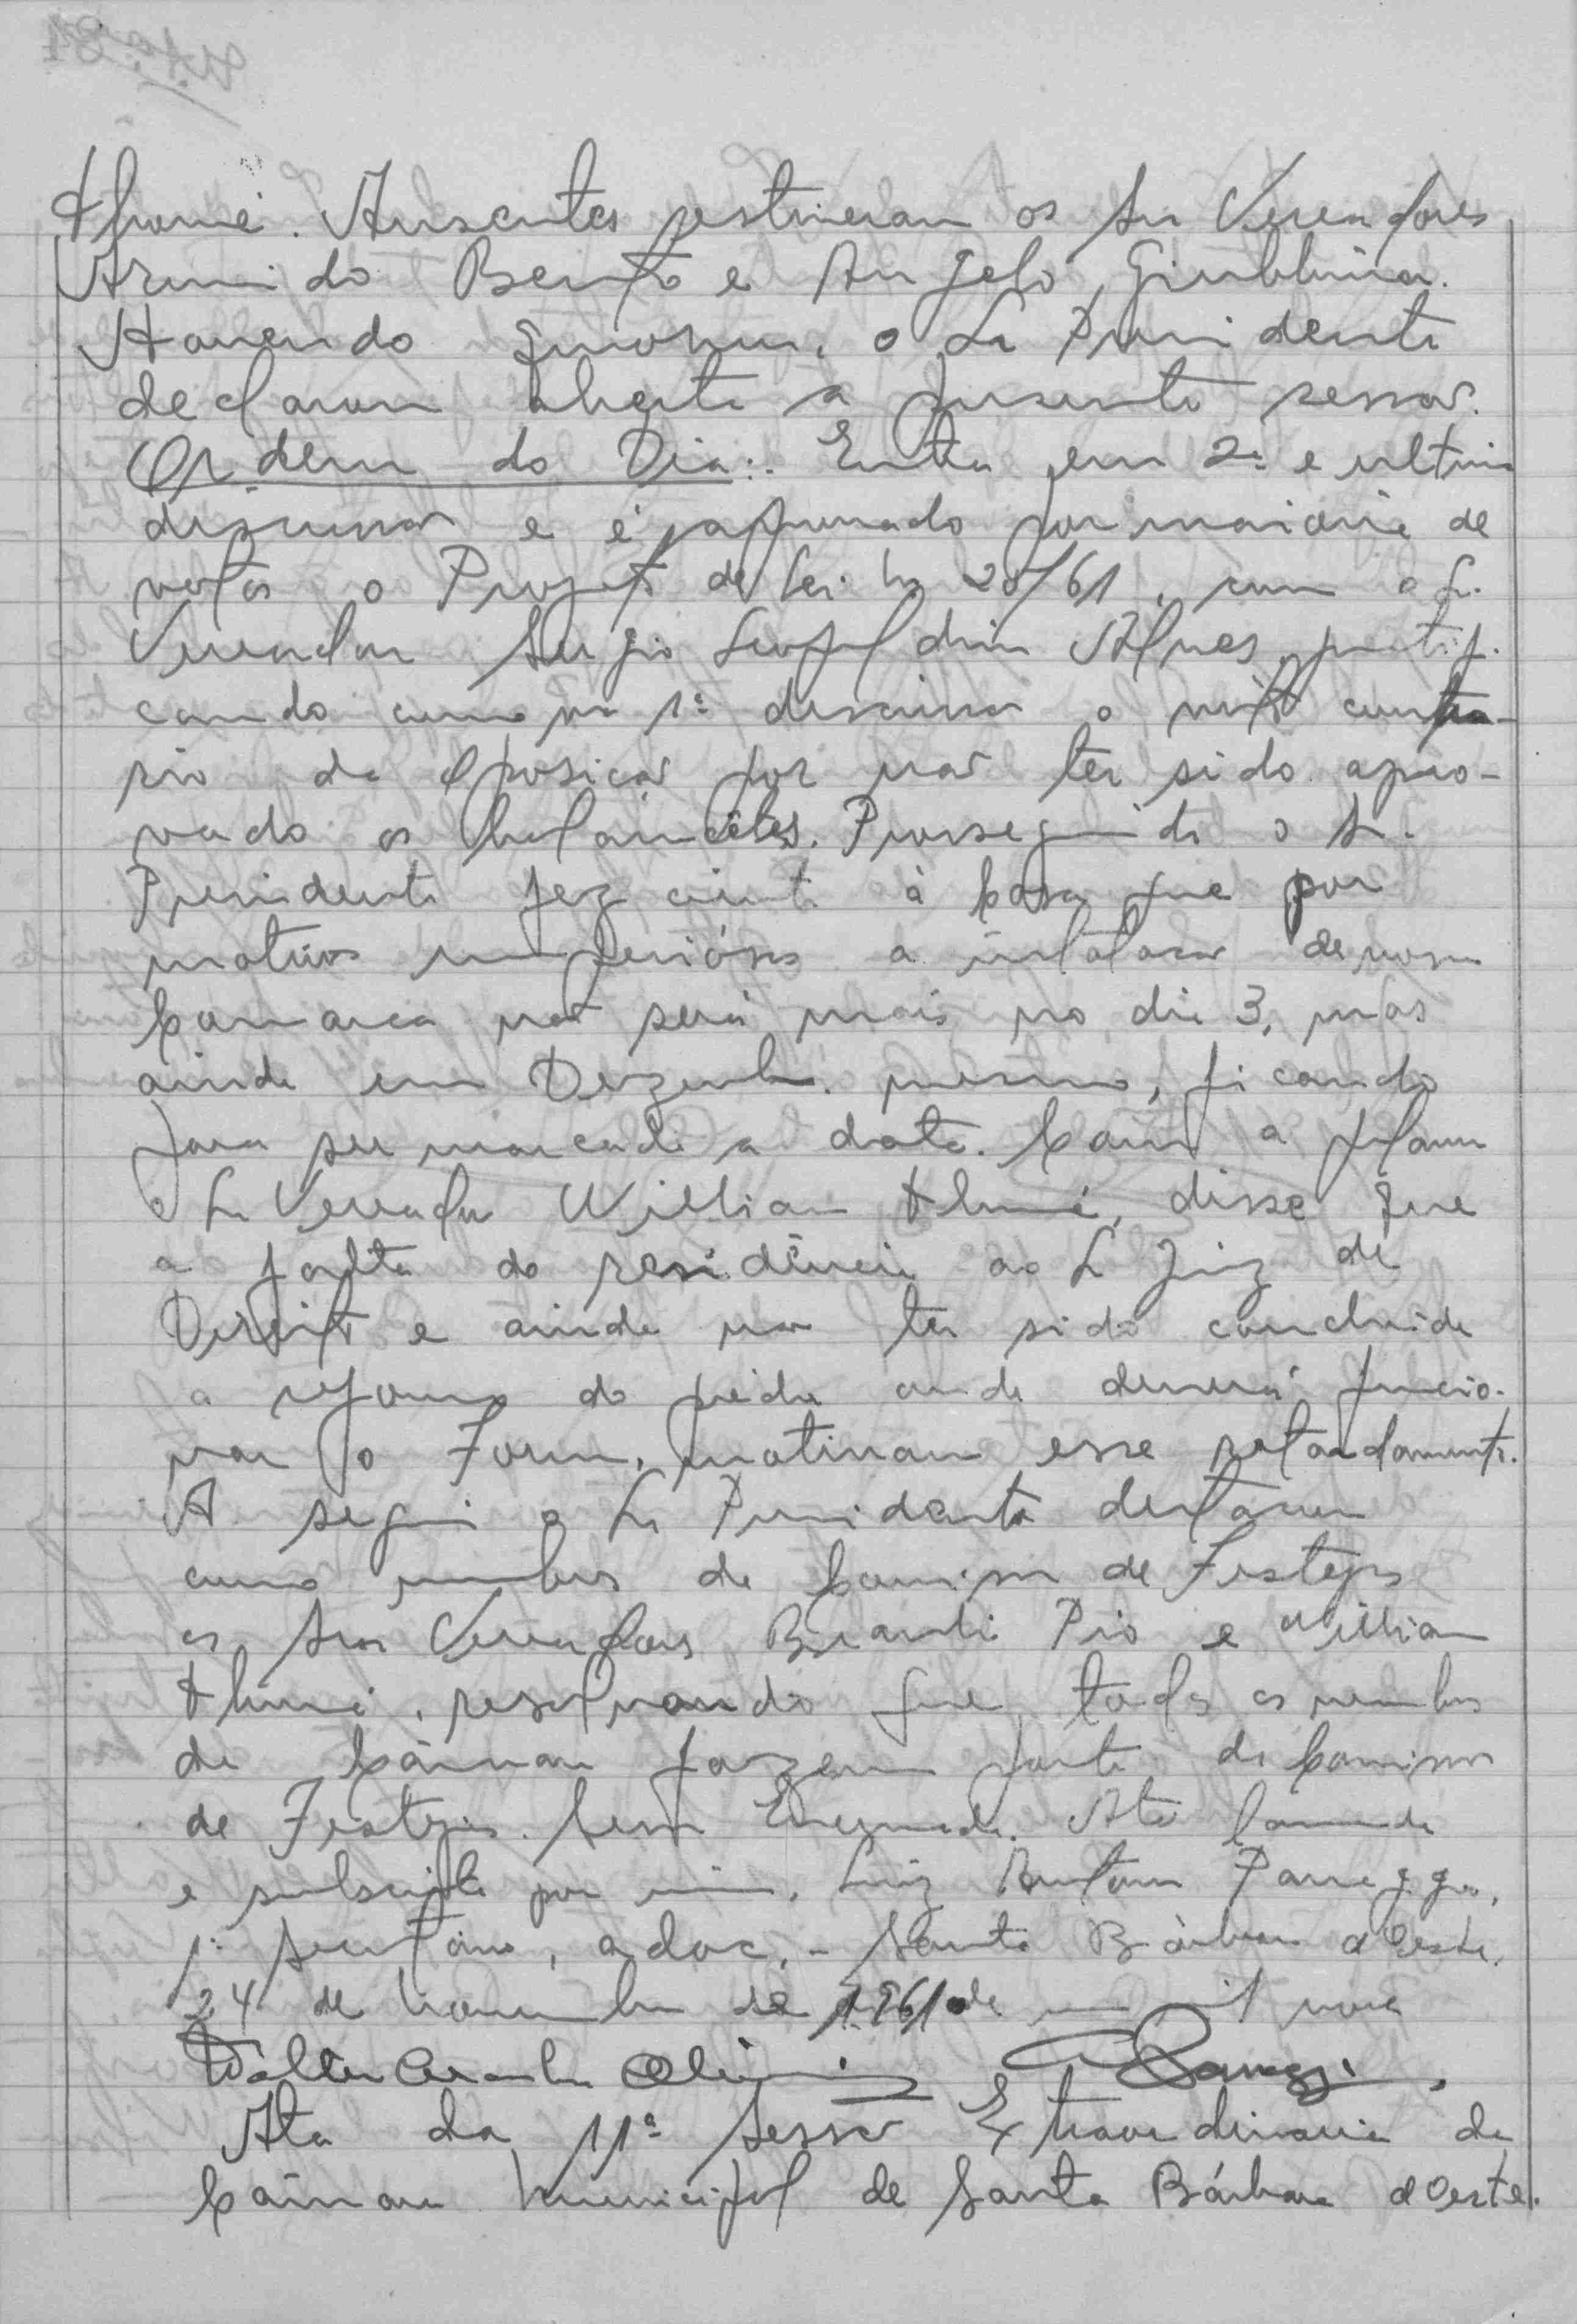 Thomé. Ausentes estiveram os Srs Vereadores
Arnaldo Bento e Angelo Giubbina.
Havendo quorum, o Sr Presidente
declarou aberta a presente sessão.
Ordem do Dia:. Entra em 2ª e ultima
discussão e é aprovado por maioria de
votos o Projeto de Lei No 20/61, com o Sr.
Vereador Sergio Leopoldino Alves, justifi-
cando como na 1ª discussão o voto contra-
rio da oposição por não ter sido apro-
vado os balancêtes. Prosseguindo o Sr.
Presidente fez ciente à Casa que por
motivos superióres a instalação de nossa
Comarca não será mais no dia 3, mas
ainda em Dezembro mesmo, ficando
para ser marcada a data. Com a palavra
o Sr Vereador Willian Thomé, disse que
a falta de residência ao Sr Juiz de
Direito e ainda não ter sido concluida
a reforma do prédio onde deverá funcio-
nar o Forum, motivaram esse retardamento.
A seguir o Sr Presidente declarou
como membros da Comissão de Festejos
os Srs Vereadores Pio e Willian
Thomé, resalvando que todos os membros
da Câmara fazem parte da Comissão
de Festejos. Sessão Encerrada. Ata lavrada
e subscrita por mim, Luiz Antonio Panaggio,
1º Secretário, adoc. - Santa Bárbara d'Oeste,
24 de Novembro de 1961
Walter
Ata da 11ª Sessão Extraordinaria da
Câmara Municipal de Santa Bárbara d'Oeste.